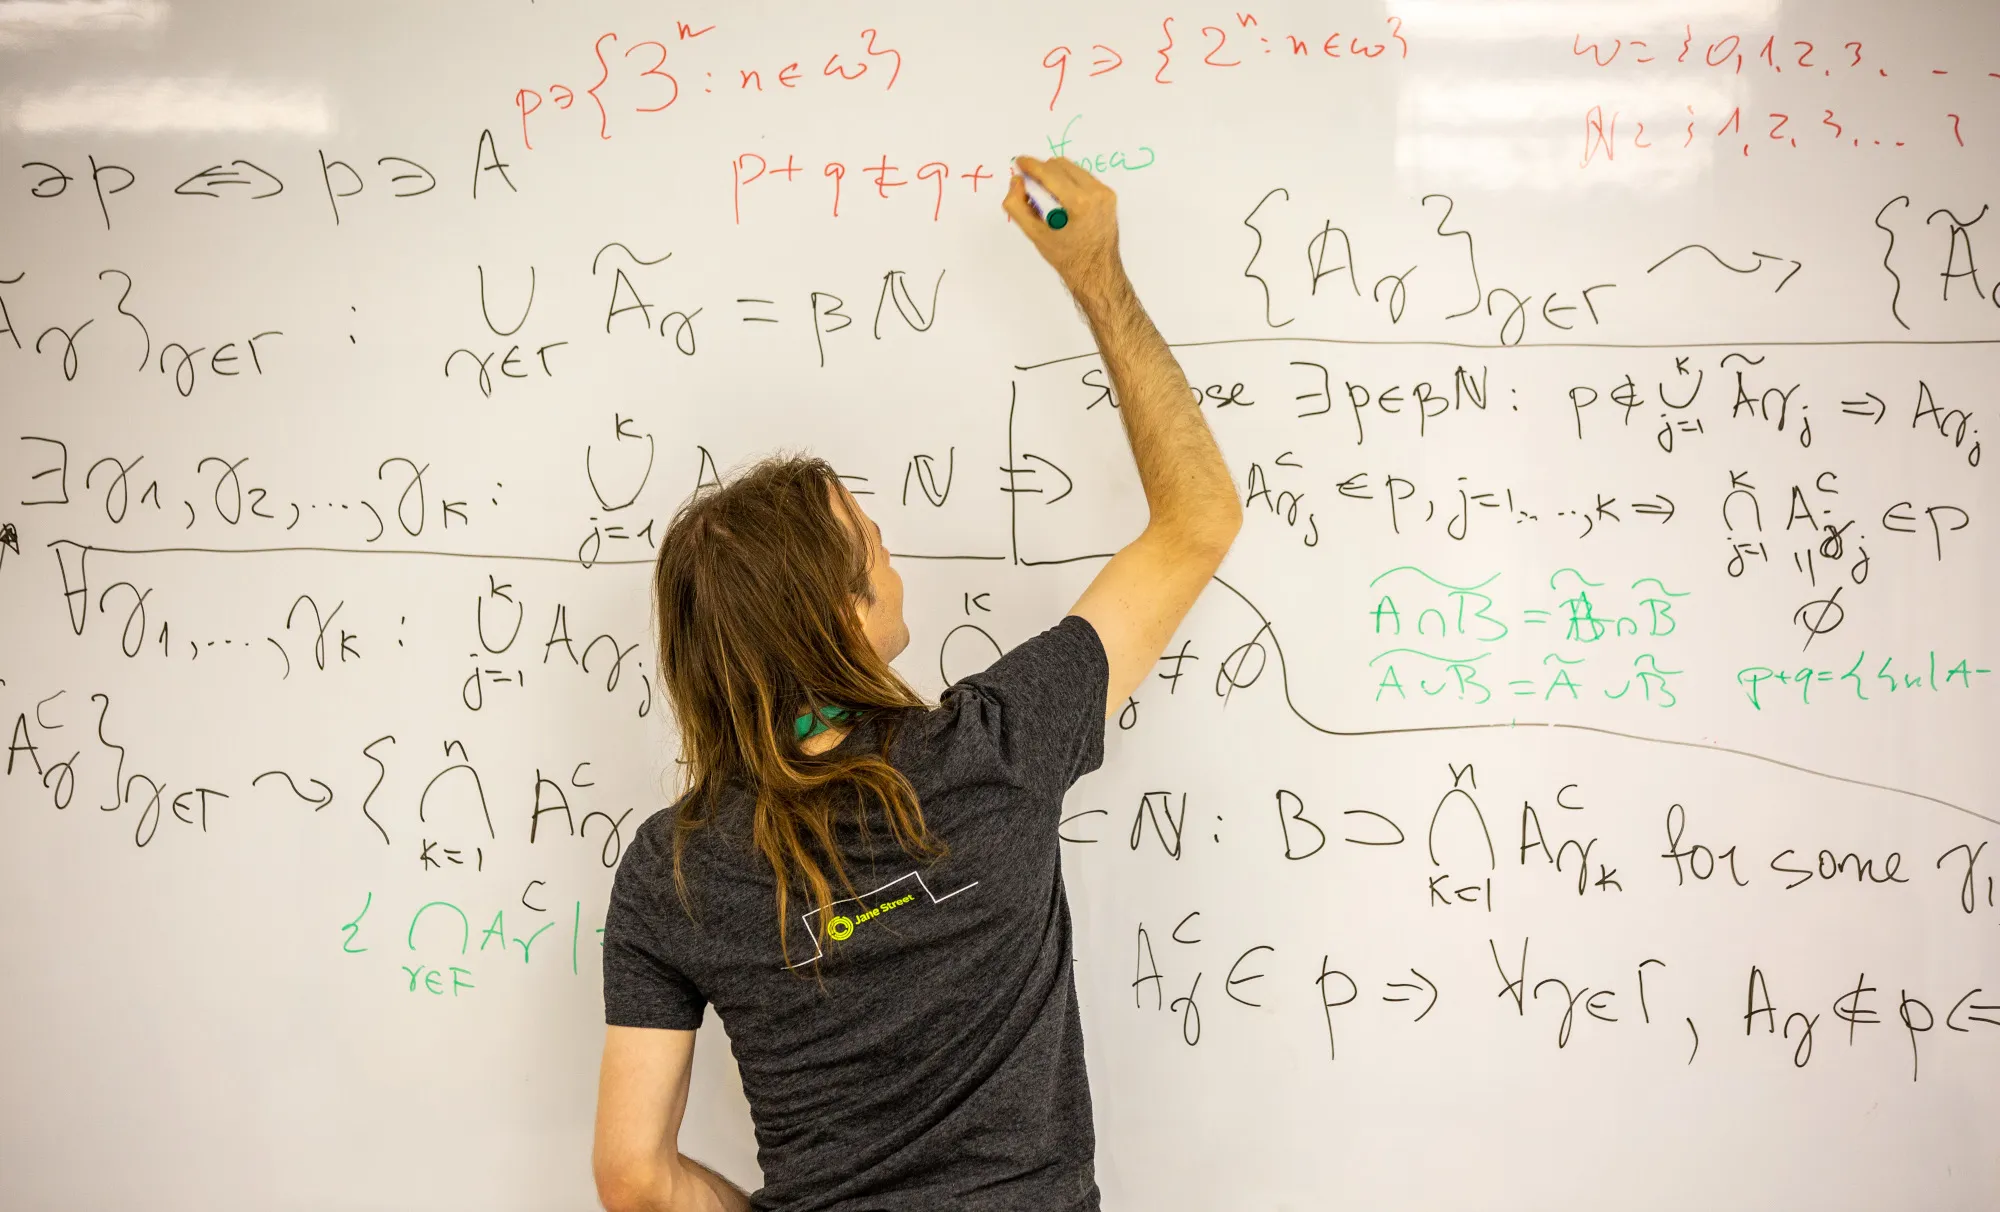 p∋{3ⁿ : n∈ω}
q∋{2ⁿ : n∈ω}
ω={0,1,2,3,...
ℕ={1,2,3,...}
∋p ⟺ p∋A
p+q≠q+
∀n∈ω
Ã_γ}_{γ∈Γ} : ∪_{γ∈Γ} Ã_γ = βℕ
{A_γ}_{γ∈Γ} ⇝ {Ã
∃γ₁,γ₂,...,γ_k : ∪_{j=1}^k A = ℕ ⇒
∃p∈βℕ : p∉∪_{j=1}^k Ã_{γ_j} ⇒ A_{γ_j}
A^c_{γ_j}∈p, j=1,...,k ⇒ ∩_{j=1}^k A^c_{γ_j}∈p
=
∅
∀γ₁,...,γ_k : ∪_{j=1}^k A_{γ_j}
∩^k _j ≠ ∅
A∩B~ = Ã∩B̃
A∪B~ = Ã∪B̃
p+q={{n|A-
A^c_γ}_{γ∈Γ} ⇝ {∩_{k=1}^n A^c_γ
⊂ℕ : B⊃∩_{k=1}^n A^c_{γ_k} for some γ₁
{∩_{γ∈F} A^c_γ|
A^c_γ∈p ⇒ ∀γ∈Γ, A_γ∉p ⇐
Jane Street